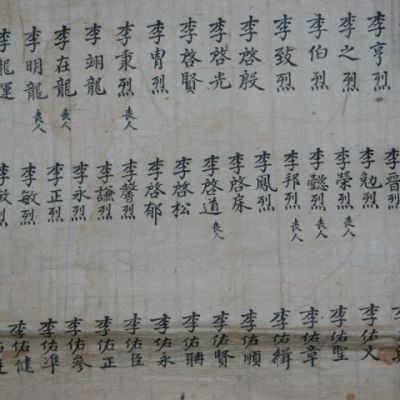 李亨烈
李之烈 喪人
李伯烈
李致烈
李啓殷
李啓光
李啓賢
李胄烈
李秉烈 喪人
李翊龍
李在龍 喪人
李明龍 喪人
李龍運
李晋烈
李勉烈
李榮烈 喪人
李懿烈 喪人
李邦烈 喪人
李鳳烈
李啓床
李啓道 喪人
李啓松
李啓郁
李馨烈
李謙烈
李永烈
李正烈
李敏烈
李佑文
李佑聖
李佑章
李佑緝
李佑順
李佑賢
李佑聃
李佑永
李佑臣
李佑正
李佑參
李佑準
李佑健